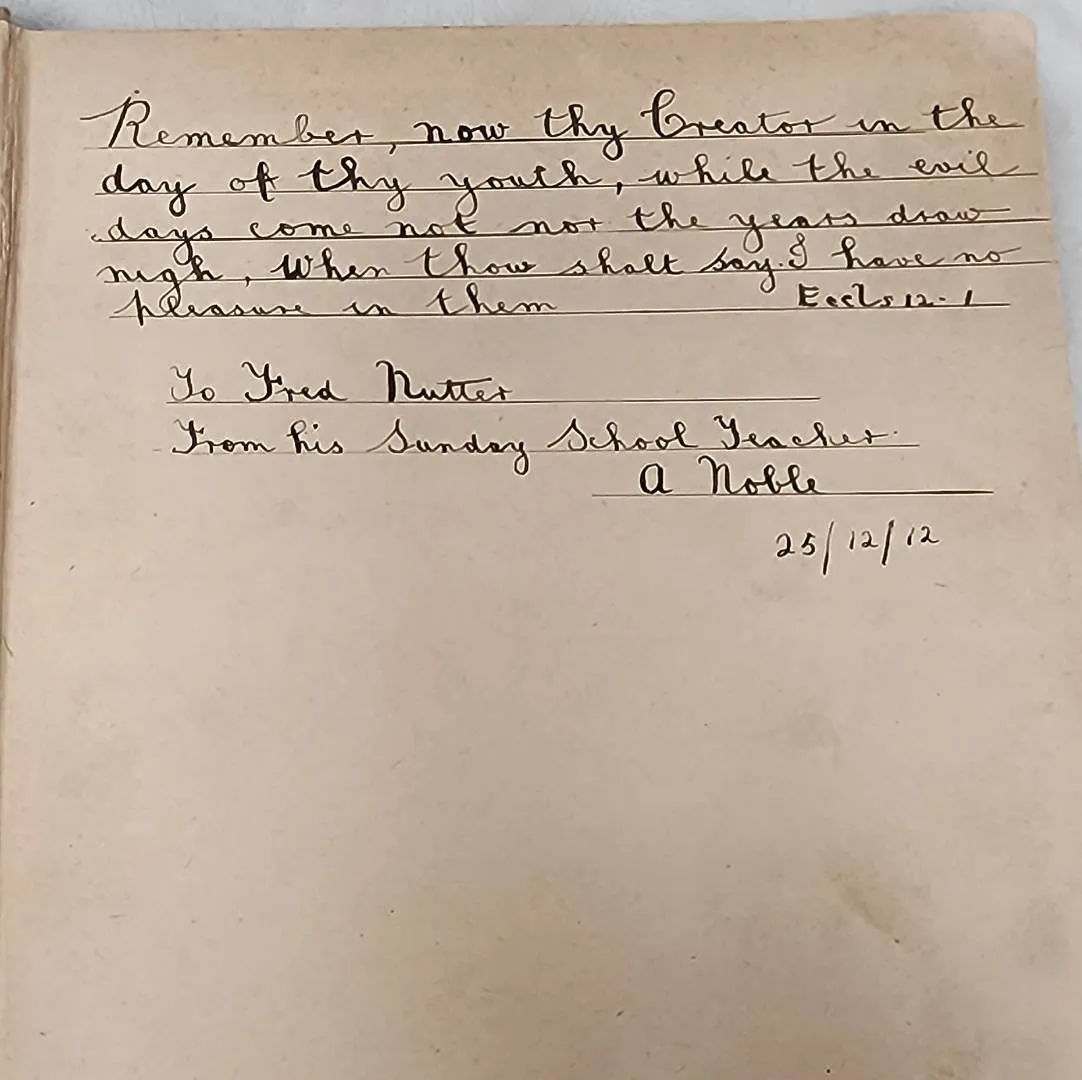 Remember, now thy Creator in the
day of thy youth, while the evil
days come not nor the years draw
nigh, When thow shalt say. I have no
pleasure in them Eccls 12-1
To Fred Nutter
From his Sunday School Teacher.
A Noble
25/12/12